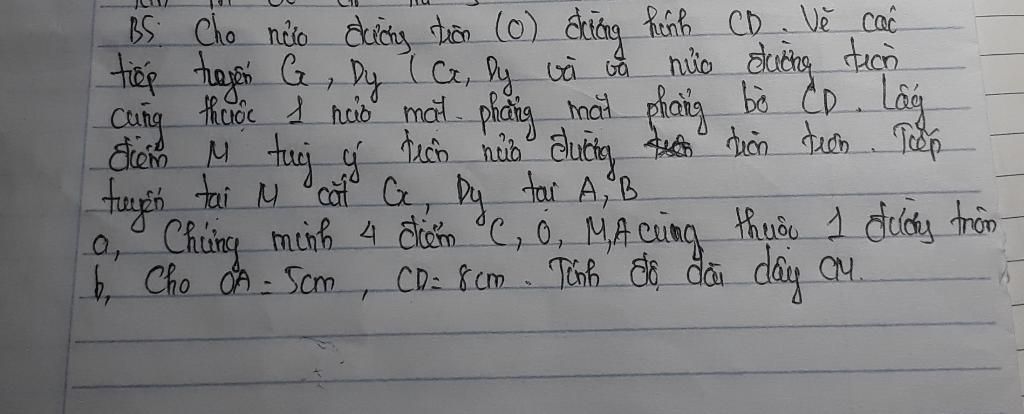 B5: Cho nửa đường tròn (O) đường kính CD. Vẽ các
tiếp tuyến Cx, Dy (Cx, Dy và và nửa đường tròn
cùng thuộc 1 nửa mặt phẳng mặt phẳng bờ CD. Lấy
điểm M tuỳ ý trên nửa đường tròn tròn. Tiếp
tuyến tại M cắt Cx, Dy tại A, B
a, Chứng minh 4 điểm C, O, M, A cùng thuộc 1 đường tròn
b, Cho OA = 5cm, CD = 8cm. Tính độ dài dây CM.